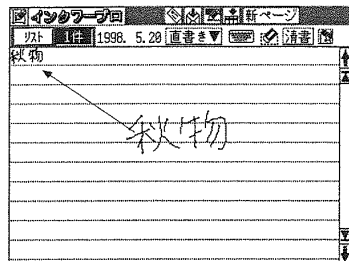 インクワープロ 新ページ
リスト 1件 1998. 5.20 直書き▼ 清書
秋物
秋物